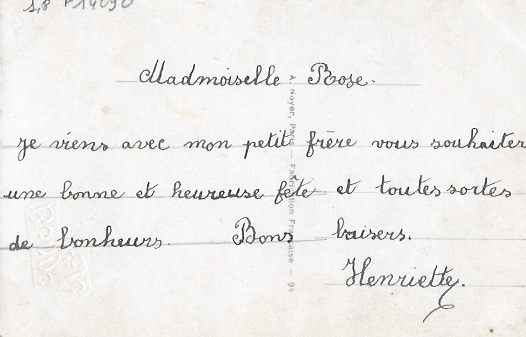 1,8 F14090
Madmoiselle Rose.
Je viens avec mon petit frère vous souhaiter
une bonne et heureuse fête et toutes sortes
de bonheurs. Bons baisers.
Henriette.
A. Noyer, Paris — Fabrication Française — 94